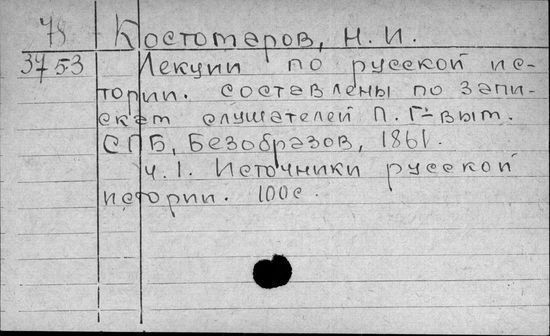 78 Костомаров, Н. И.
3753 Лекции по русской ис-
тории. составлены по запи-
скам слушателей П. Г-вым.
СПБ, Безобразов, 1861.
ч. 1. Источники русской
истории. 100с.